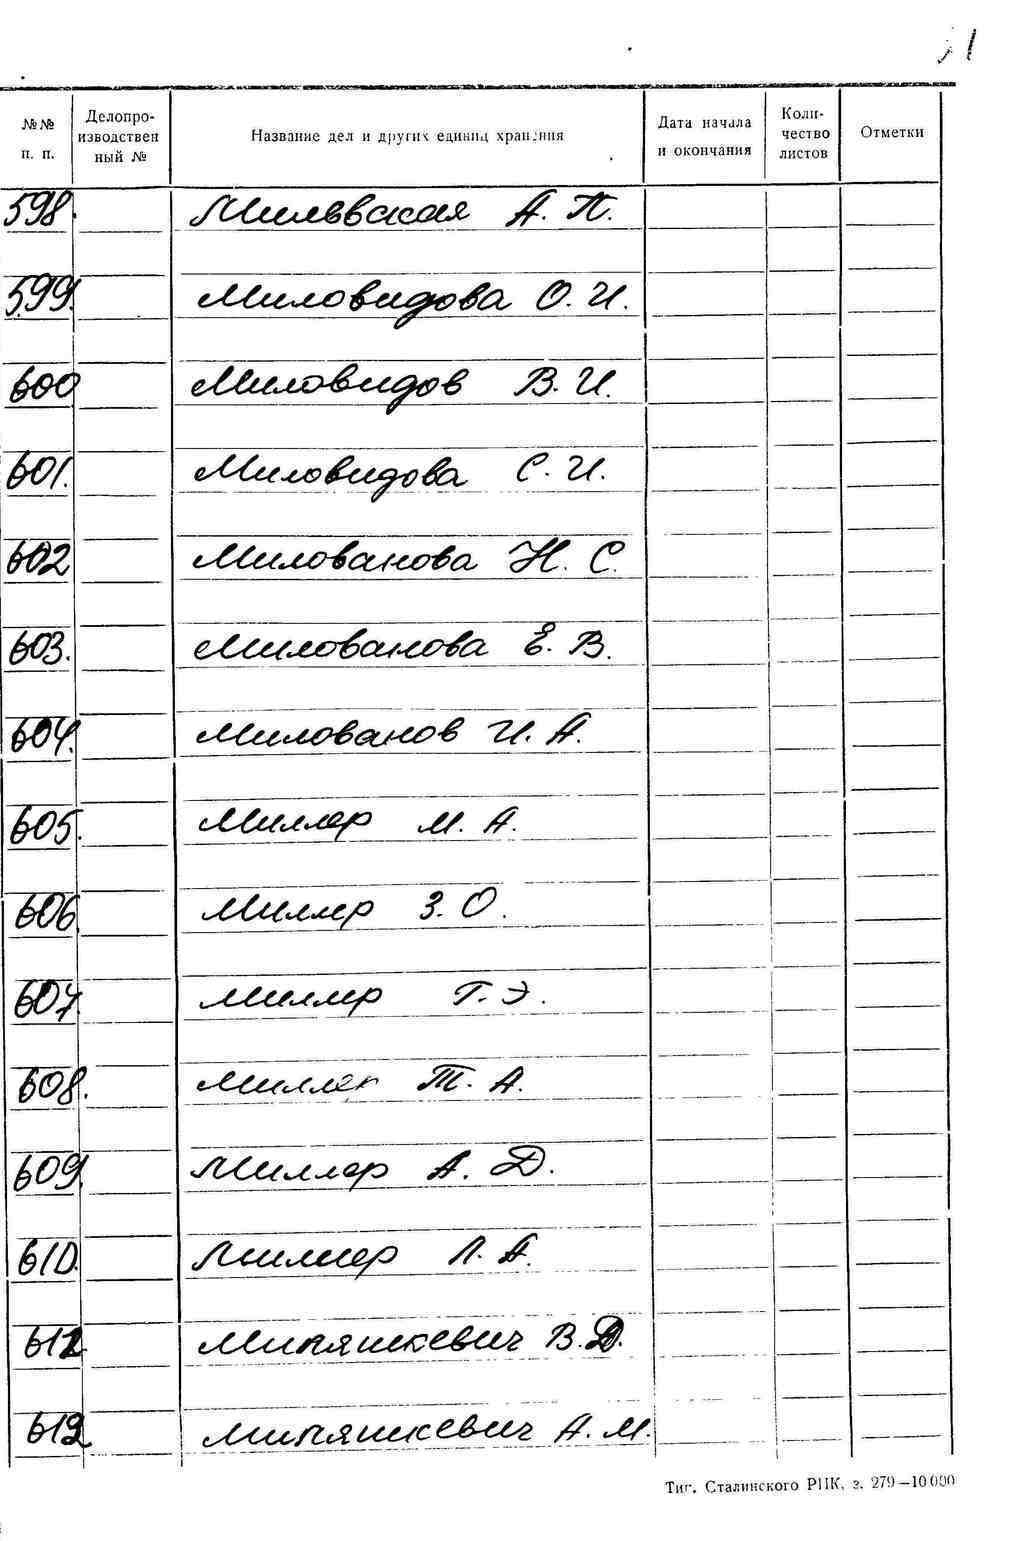 1
№№ п. п.
Делопро-
изводствен
ный №
Название дел и других единиц хранения
Дата начала
и окончания
Коли-
чество
листов
Отметки
598. А. П.
599. Миловидова О. И.
600 Миловидов В. И.
601. Миловидова С. И.
602 Милованова Н. С.
603. Милованова Е. В.
604. Милованов И. А.
605. Миллер М. А.
606 Миллер З. О.
607. Миллер Г. Э.
608. Миллер Т. А.
609. Миллер А. Д.
610. Миллер Л. А.
В. Д.
А. М.
Тип. Сталинского РПК, з. 279—10 000